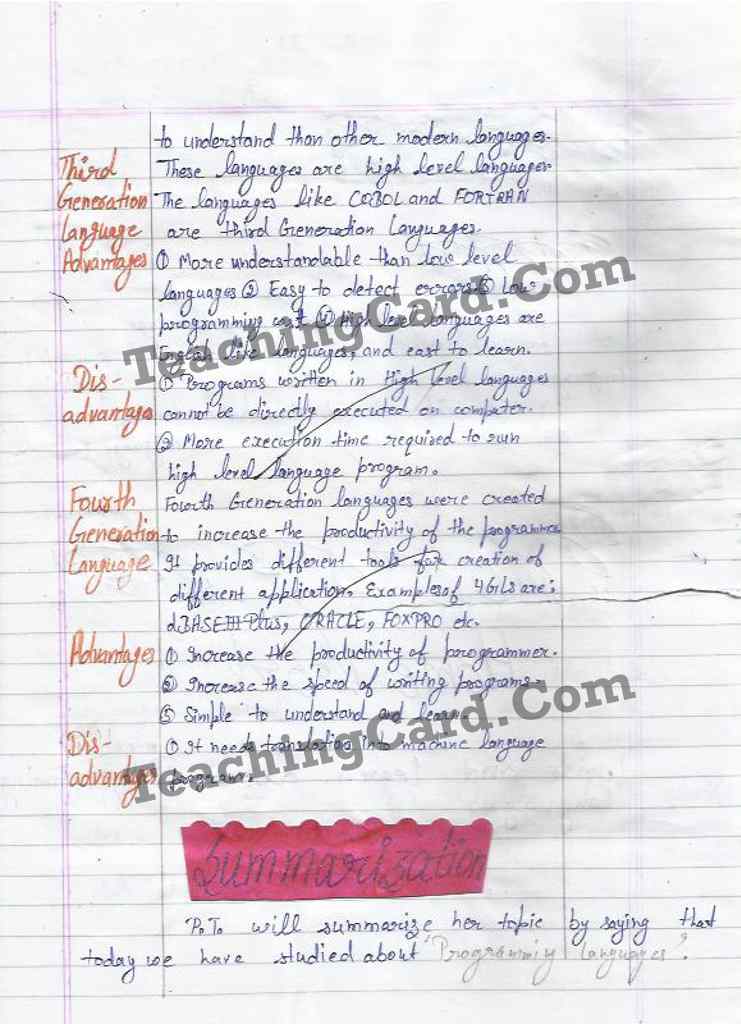 to understand than other modern languages.
Third These languages are high level languages.
Generation The languages like COBOL and FORTRAN
Language are third Generation Languages.
Advantages ① More understandable than low level
languages ② Easy to detect errors ③ Low
programming cost ④ High level languages are
English like languages, and east to learn.
TeachingCard.Com
Dis- ① Programs written in High level languages
advantages cannot be directly executed on computer.
② More execution time required to run
high level language program.
Fourth Fourth Generation languages were created
Generation to increase the productivity of the programmer
Language It provides different tools for creation of
different application. Examples of 4GLs are:
dBASE III Plus, ORACLE, FOXPRO etc.
Advantages ① Increase the productivity of programmer.
② Increase the speed of writing programs.
③ Simple to understand and learn.
Dis- ① It needs translation into machine language
advantages program.
TeachingCard.Com
Summarization
P.T. will summarize her topic by saying that
today we have studied about 'Programming Languages'.